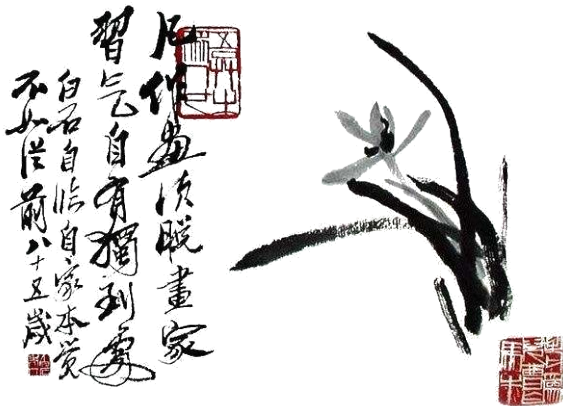 凡作畫須脫畫家
習氣自有獨到處
白石自臨自家本覺
不如從前八十五歲